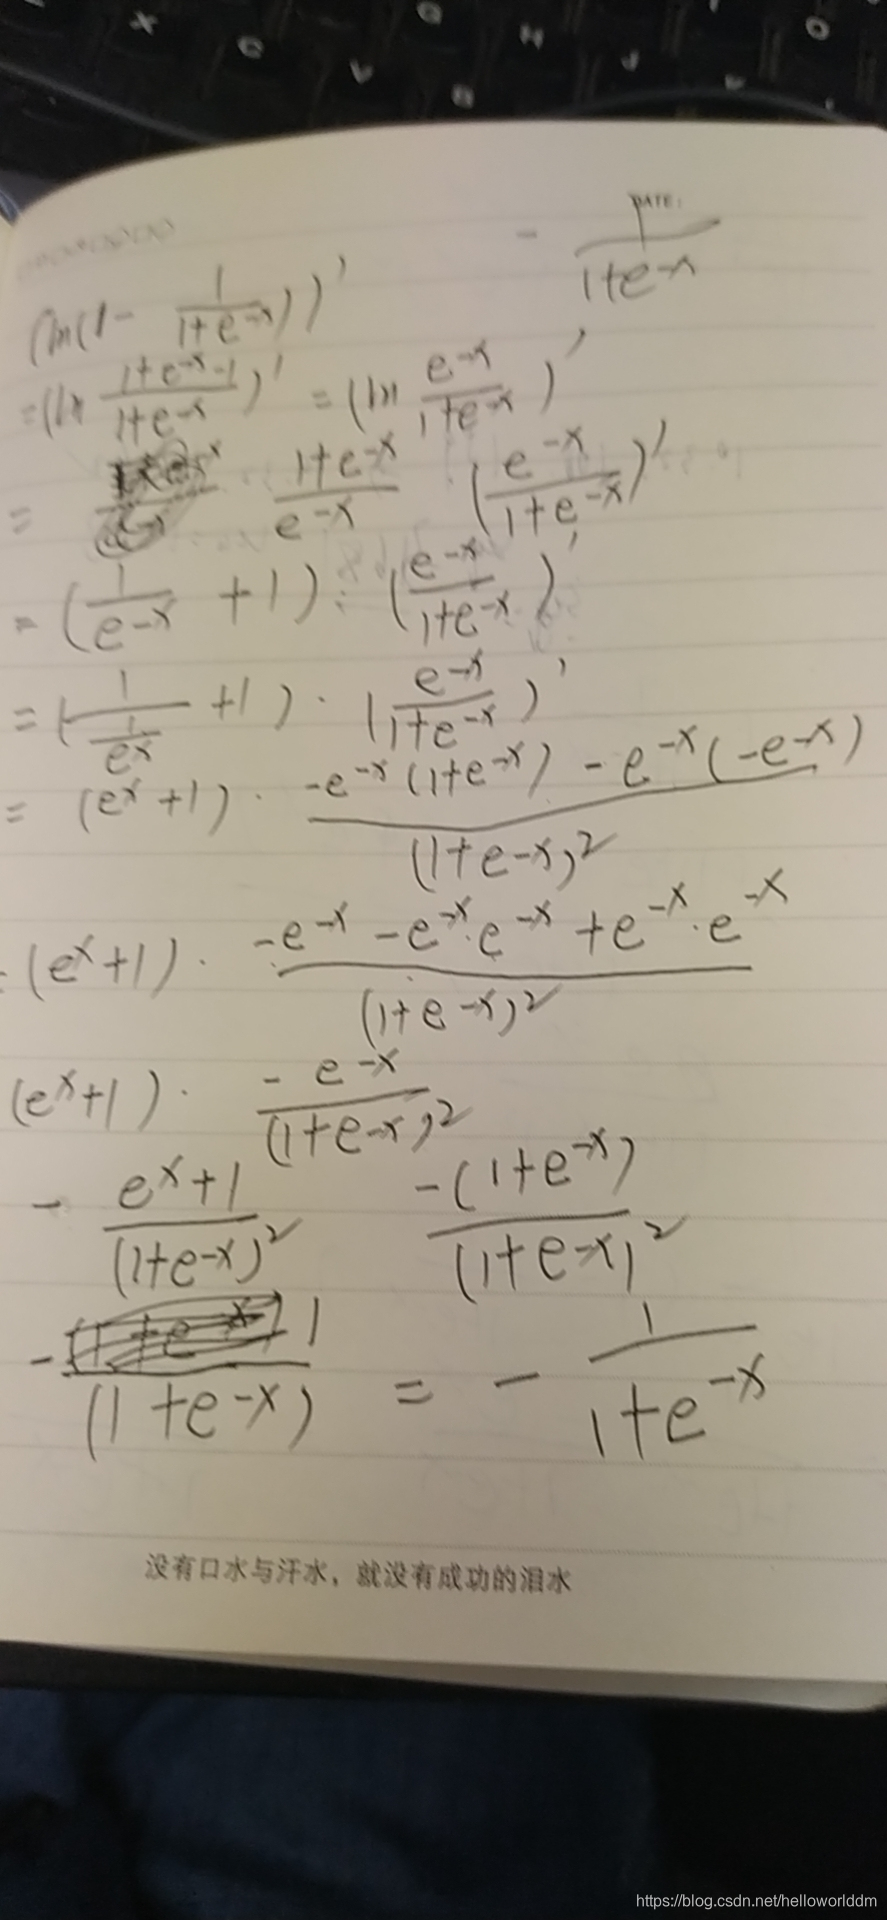 DATE:
- 1/(1+e^-x)
(ln(1- 1/(1+e^-x)))'
=(ln (1+e^-x-1)/(1+e^-x))' = (ln e^-x/(1+e^-x))'
= (1+e^-x)/e^-x (e^-x/(1+e^-x))'
= (1/e^-x +1) · (e^-x/(1+e^-x))'
= (1/(1/e^x) +1) · (e^-x/(1+e^-x))'
= (e^x+1) · (-e^-x(1+e^-x) - e^-x(-e^-x))/(1+e^-x)^2
=(e^x+1) · (-e^-x -e^-x·e^-x +e^-x·e^-x)/(1+e^-x)^2
(e^x+1) · -e^-x/(1+e^-x)^2
- (e^x+1)/(1+e^-x)^2 -(1+e^-x)/(1+e^-x)^2
- 1/(1+e^-x) = - 1/(1+e^-x)
没有口水与汗水，就没有成功的泪水
https://blog.csdn.net/helloworlddm